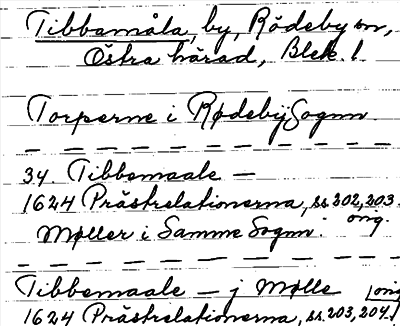 Tibbemåla, by, Rödeby sn,
Östra härad, Blek. l.
Torperne i Rødebÿ Sognn
34. Tibbemaale —
1624 Prästrelationerna, ss. 202, 203.
orig.
Møller i Samme Sognn:
Tibbemaale — j Mølle
orig.
1624 Prästrelationerna, ss. 203, 204.